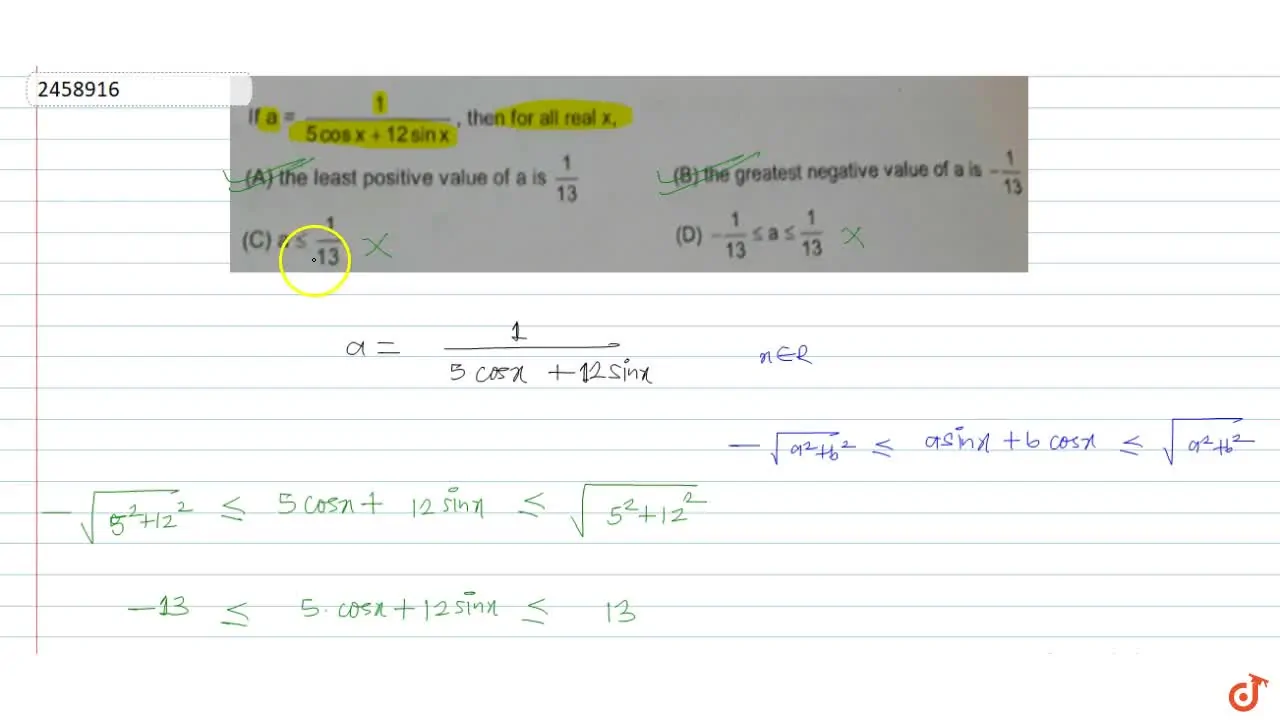 2458916
If a = 1 / 5 cos x + 12 sin x , then for all real x,
(A) the least positive value of a is 1/13
(B) the greatest negative value of a is - 1/13
(C) a ≤ 1/13 X
(D) - 1/13 ≤ a ≤ 1/13 X
a = 1 / 5 cosx + 12 sinx
x∈R
- √a²+b² ≤ a sinx + b cosx ≤ √a²+b²
- √5²+12² ≤ 5 cosx + 12 sinx ≤ √5²+12²
-13 ≤ 5. cosx + 12 sinx ≤ 13